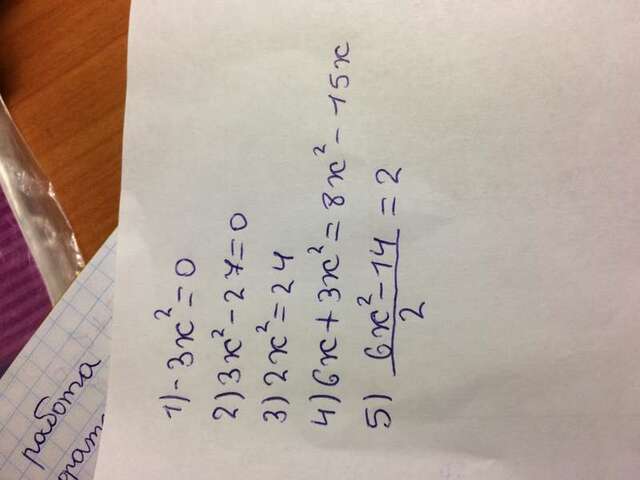 работа
1) -3x² = 0
2) 3x² - 27 = 0
3) 2x² = 24
4) 6x + 3x² = 8x² - 15x
5) (6x² - 14)/2 = 2